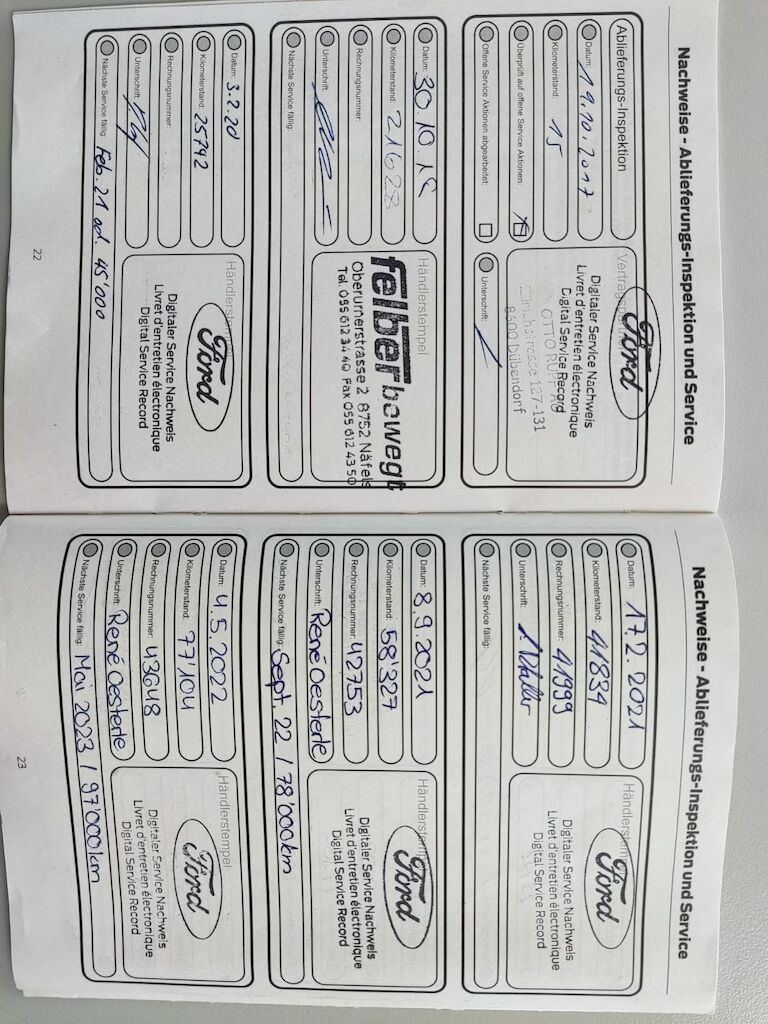 Nachweise - Ablieferungs-Inspektion und Service
Ablieferungs-Inspektion
Datum: 19.10.2017
Kilometerstand: 15
Überprüft auf offene Service Aktionen:
Offene Service Aktionen abgearbeitet:
Ford
Digitaler Service Nachweis
Livret d'entretien électronique
Digital Service Record
OTTO
127-131
8600 Dübendorf
Unterschrift:
Datum: 30.10.18
Kilometerstand: 21628
Rechnungsnummer:
Unterschrift:
Nächste Service fällig:
Händlerstempel
felber bewegt
Oberurnerstrasse 2 8752 Näfels
Tel. 055 612 34 40 Fax 055 612 43 50
Datum: 3.2.20
Kilometerstand: 25792
Rechnungsnummer:
Unterschrift:
Nächste Service fällig: Feb. 21 od. 45'000
Händlerstempel
Ford
Digitaler Service Nachweis
Livret d'entretien électronique
Digital Service Record
22
Nachweise - Ablieferungs-Inspektion und Service
Datum: 17.2.2021
Kilometerstand: 41834
Rechnungsnummer: 41999
Unterschrift:
Nächste Service fällig:
Händlerstempel
Ford
Digitaler Service Nachweis
Livret d'entretien électronique
Digital Service Record
Datum: 8.9.2021
Kilometerstand: 58'327
Rechnungsnummer: 42753
Unterschrift: René Oesterle
Nächste Service fällig: Sept. 22 / 78'000km
Händlerstempel
Ford
Digitaler Service Nachweis
Livret d'entretien électronique
Digital Service Record
Datum: 4.5.2022
Kilometerstand: 77'104
Rechnungsnummer: 43648
Unterschrift: René Oesterle
Nächste Service fällig: Mai 2023 / 97'000km
Händlerstempel
Ford
Digitaler Service Nachweis
Livret d'entretien électronique
Digital Service Record
23